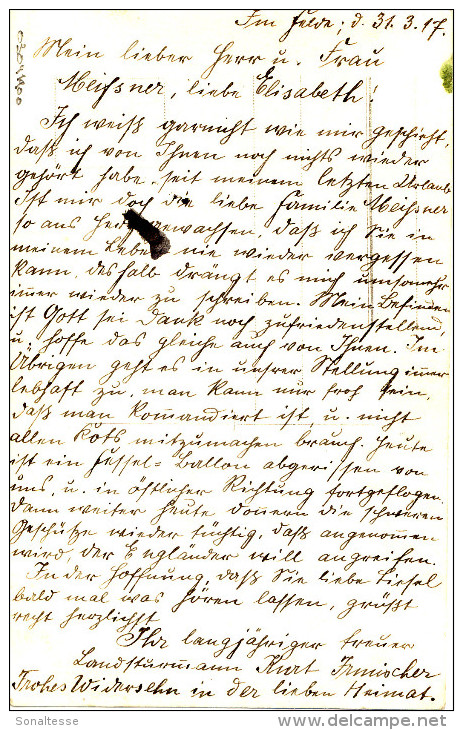 Im Felde; d. 31.3.17.
Mein lieber Herr u. Frau
Meißner, liebe Elisabeth!
Ich weiß garnicht wie mir geschieht,
daß ich von Ihnen noch nichts wieder
gehört habe seit meinem letzten Urlaub
Ist mir doch die liebe Familie Meißner
so ans Herz gewachsen, daß ich Sie in
meinem Leben nie wieder vergessen
kann, deshalb drängt es mich umsomehr
immer wieder zu schreiben. Mein Befinden
ist Gott sei Dank noch zufriedenstellend,
u. hoffe das gleiche auch von Ihnen. Im
Übrigen geht es in unsrer Stellung immer
lebhaft zu, man kann nur froh sein,
daß man kommandiert ist u. nicht
allen mitzumachen brauch. Heute
ist ein Fessel= Ballon abgerissen von
uns, u. in östlicher Richtung fortgeflogen.
Dann weiter heute donnern die schweren
Geschütze wieder tüchtig, daß angenommen
wird, der Engländer will angreifen.
In der Hoffnung, daß Sie liebe
bald mal was hören lassen, grüßt
recht herzlichst
Ihr langjähriger treuer
Landsturmmann Kurt Irmischer
Frohes Widersehn in der lieben Heimat.
Sonaltesse
delcampe.net